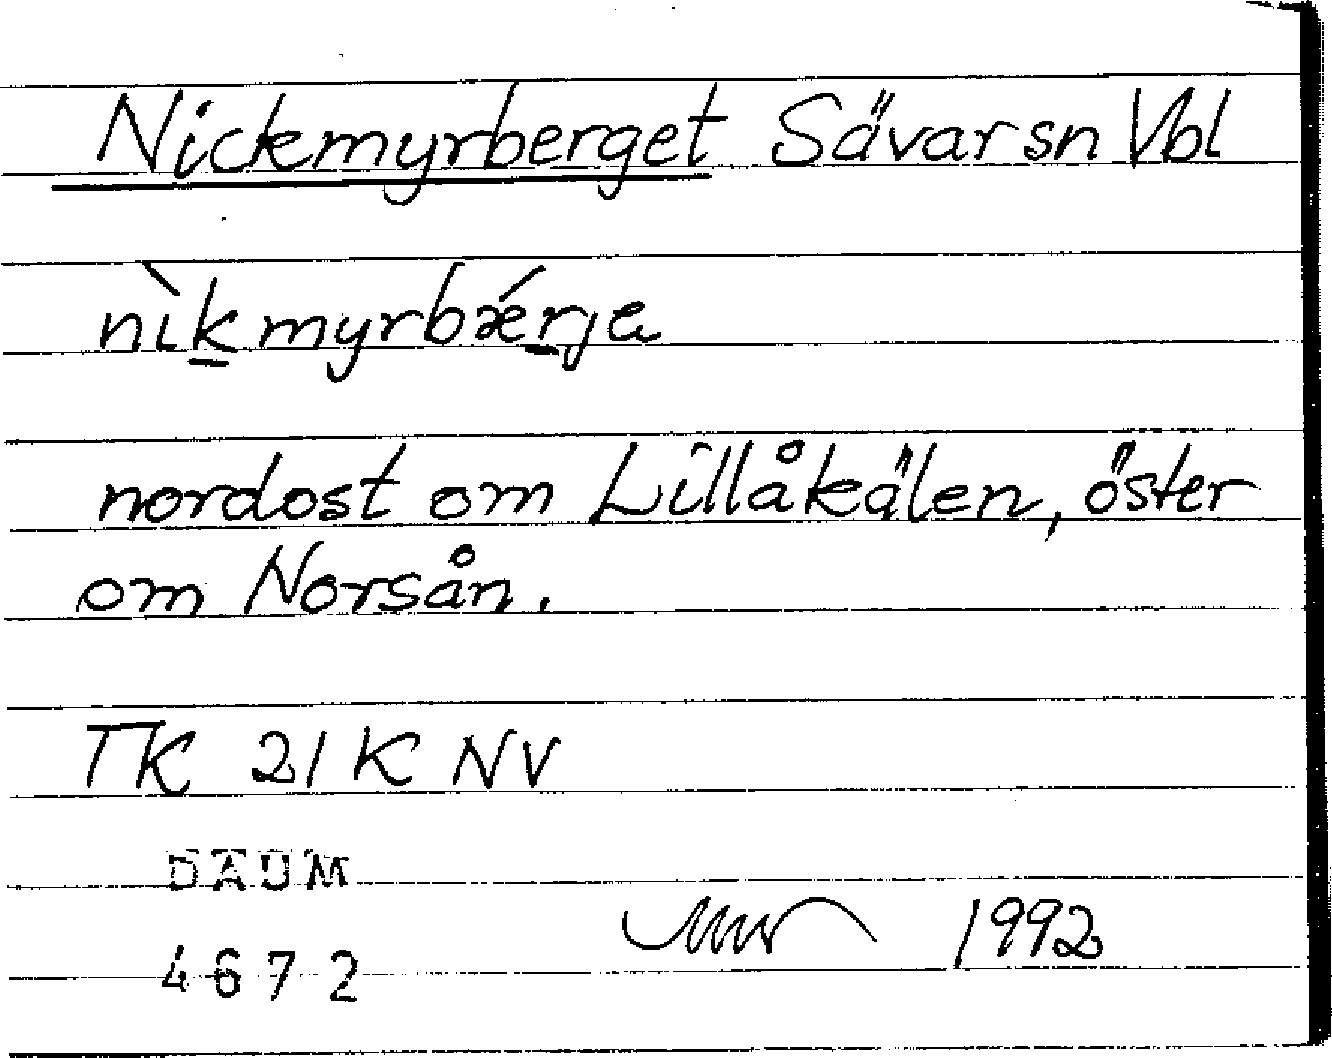 Nickmyrberget Sävar sn Vbl
nìk̲myrbǽr̲ja
nordost om Lillåkälen, öster
om Norsån.
TK 21 K NV
DAUM
1992
4672